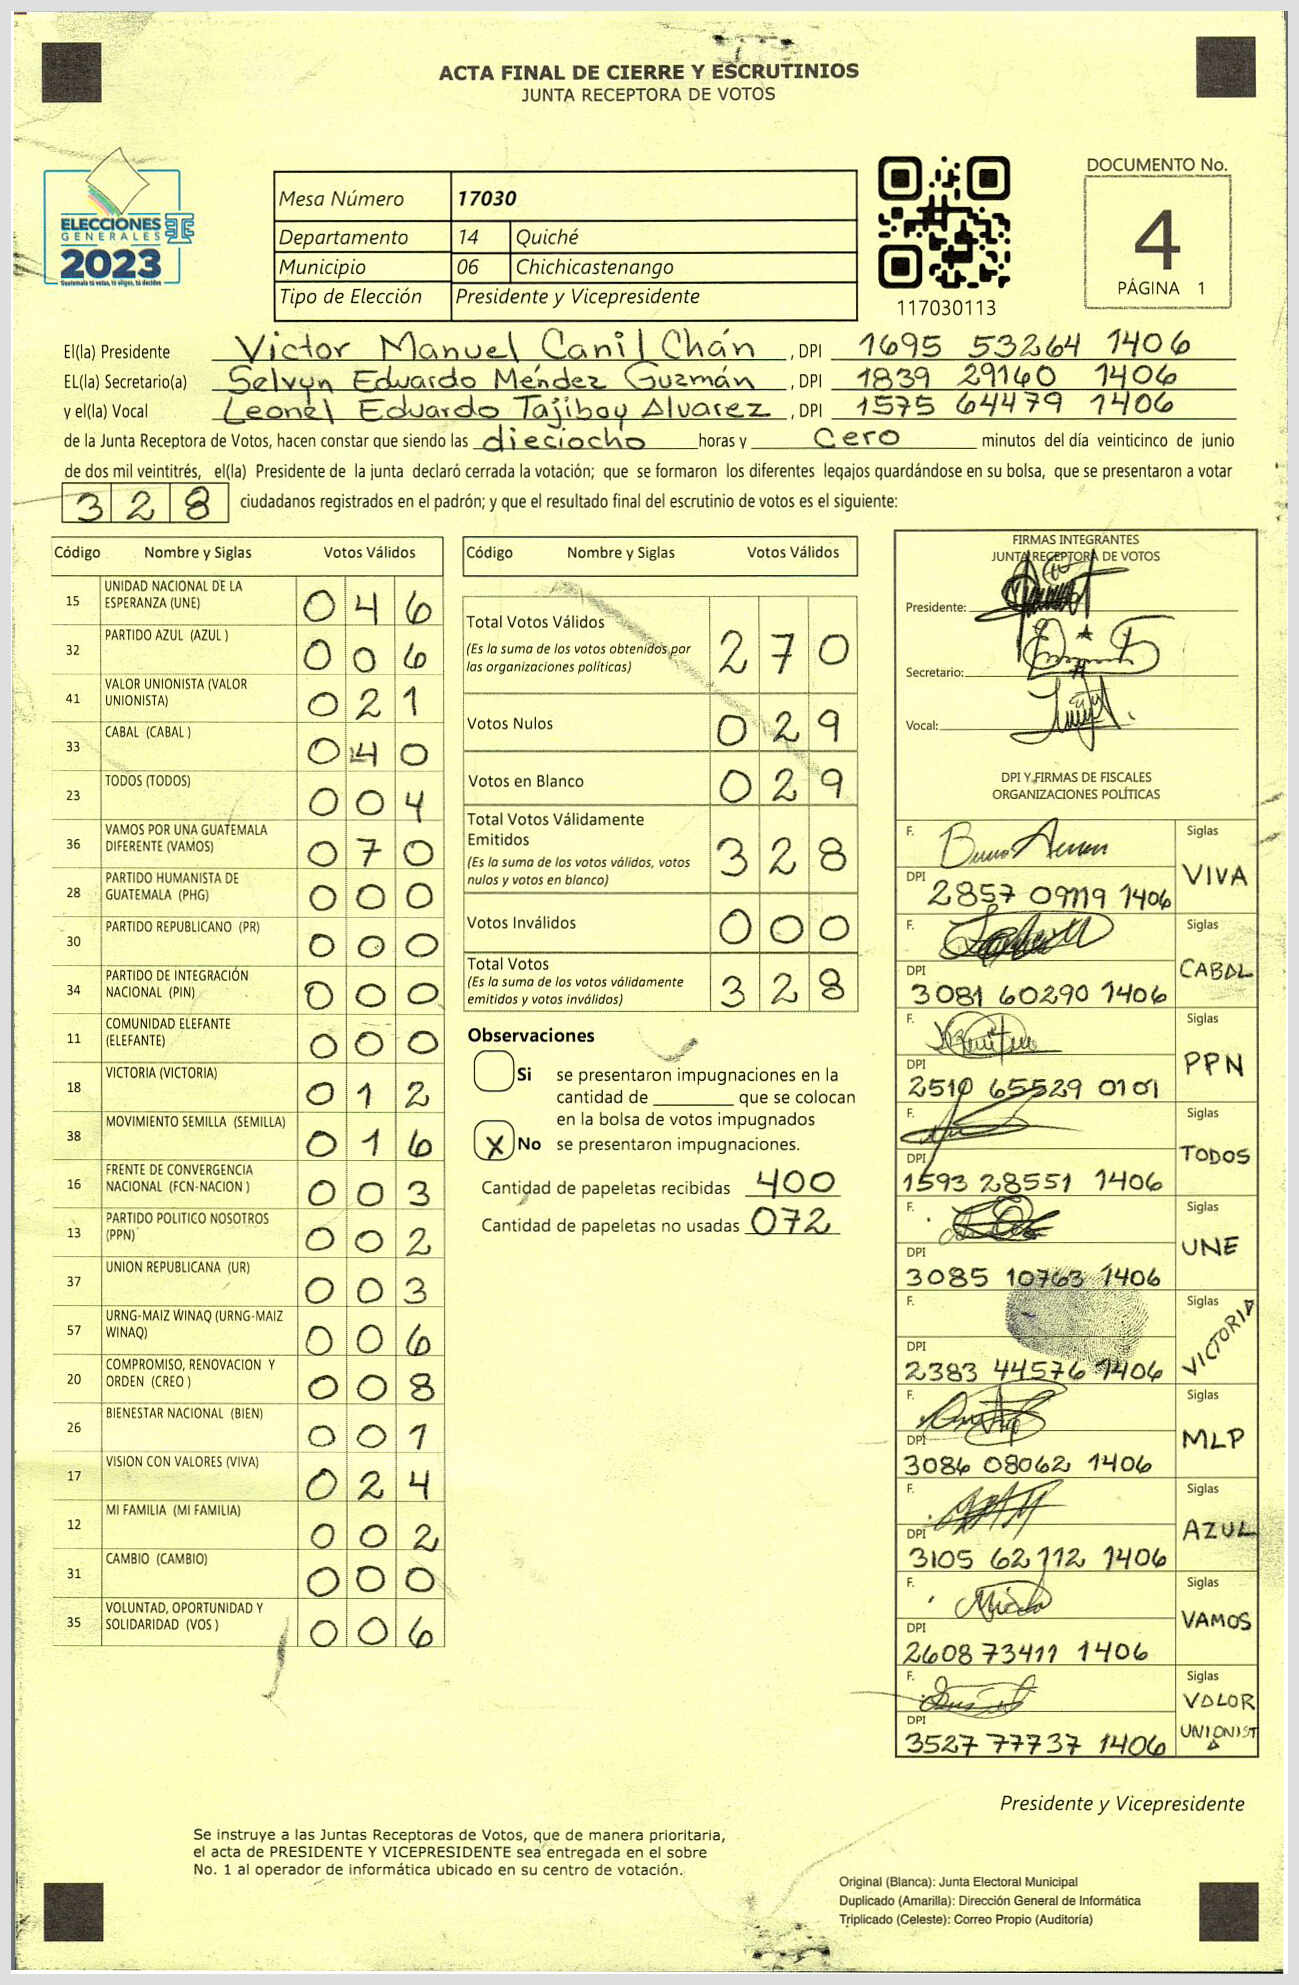 ACTA FINAL DE CIERRE Y ESCRUTINIOS
JUNTA RECEPTORA DE VOTOS
ELECCIONES
GENERALES
2023
Guatemala tú votas, tú eliges, tú decides
Mesa Número 17030
Departamento 14 Quiché
Municipio 06 Chichicastenango
Tipo de Elección Presidente y Vicepresidente
117030113
DOCUMENTO No.
4
PÁGINA 1
El(la) Presidente Victor Manuel Canil Chán , DPI 1695 53264 1406
EL(la) Secretario(a) Selvyn Eduardo Méndez Guzmán , DPI 1839 29160 1406
y el(la) Vocal Leonel Eduardo Tajiboy Alvarez , DPI 1575 64479 1406
de la Junta Receptora de Votos, hacen constar que siendo las dieciocho horas y cero minutos del día veinticinco de junio
de dos mil veintitrés, el(la) Presidente de la junta declaró cerrada la votación; que se formaron los diferentes legajos guardándose en su bolsa, que se presentaron a votar
328 ciudadanos registrados en el padrón; y que el resultado final del escrutinio de votos es el siguiente:
Código Nombre y Siglas Votos Válidos
15 UNIDAD NACIONAL DE LA
ESPERANZA (UNE) 046
32 PARTIDO AZUL (AZUL ) 006
41 VALOR UNIONISTA (VALOR
UNIONISTA) 021
33 CABAL (CABAL ) 040
23 TODOS (TODOS) 004
36 VAMOS POR UNA GUATEMALA
DIFERENTE (VAMOS) 070
28 PARTIDO HUMANISTA DE
GUATEMALA (PHG) 000
30 PARTIDO REPUBLICANO (PR) 000
34 PARTIDO DE INTEGRACIÓN
NACIONAL (PIN) 000
11 COMUNIDAD ELEFANTE
(ELEFANTE) 000
18 VICTORIA (VICTORIA) 012
38 MOVIMIENTO SEMILLA (SEMILLA) 016
16 FRENTE DE CONVERGENCIA
NACIONAL (FCN-NACION ) 003
13 PARTIDO POLITICO NOSOTROS
(PPN) 002
37 UNION REPUBLICANA (UR) 003
57 URNG-MAIZ WINAQ (URNG-MAIZ
WINAQ) 006
20 COMPROMISO, RENOVACION Y
ORDEN (CREO ) 008
26 BIENESTAR NACIONAL (BIEN) 001
17 VISION CON VALORES (VIVA) 024
12 MI FAMILIA (MI FAMILIA) 002
31 CAMBIO (CAMBIO) 000
35 VOLUNTAD, OPORTUNIDAD Y
SOLIDARIDAD (VOS ) 006
Código Nombre y Siglas Votos Válidos
Total Votos Válidos
(Es la suma de los votos obtenidos por
las organizaciones políticas) 270
Votos Nulos 029
Votos en Blanco 029
Total Votos Válidamente
Emitidos
(Es la suma de los votos válidos, votos
nulos y votos en blanco) 328
Votos Inválidos 000
Total Votos
(Es la suma de los votos válidamente
emitidos y votos inválidos) 328
Observaciones
Si se presentaron impugnaciones en la
cantidad de ________ que se colocan
en la bolsa de votos impugnados
X No se presentaron impugnaciones.
Cantidad de papeletas recibidas 400
Cantidad de papeletas no usadas 072
FIRMAS INTEGRANTES
JUNTA RECEPTORA DE VOTOS
Presidente:
Secretario:
Vocal:
DPI Y FIRMAS DE FISCALES
ORGANIZACIONES POLÍTICAS
F. Siglas
VIVA
DPI 2857 09119 1406
F. Siglas
CABAL
DPI 3081 60290 1406
F. Siglas
PPN
DPI 2510 65529 0101
F. Siglas
TODOS
DPI 1593 28551 1406
F. Siglas
UNE
DPI 3085 10763 1406
F. Siglas
VICTORIA
DPI 2383 44576 1406
F. Siglas
MLP
DPI 3086 08062 1406
F. Siglas
AZUL
DPI 3105 62112 1406
F. Siglas
VAMOS
DPI 2608 73411 1406
F. Siglas
VALOR
UNIONISTA
DPI 3527 77737 1406
Presidente y Vicepresidente
Se instruye a las Juntas Receptoras de Votos, que de manera prioritaria,
el acta de PRESIDENTE Y VICEPRESIDENTE sea entregada en el sobre
No. 1 al operador de informática ubicado en su centro de votación.
Original (Blanca): Junta Electoral Municipal
Duplicado (Amarilla): Dirección General de Informática
Triplicado (Celeste): Correo Propio (Auditoría)